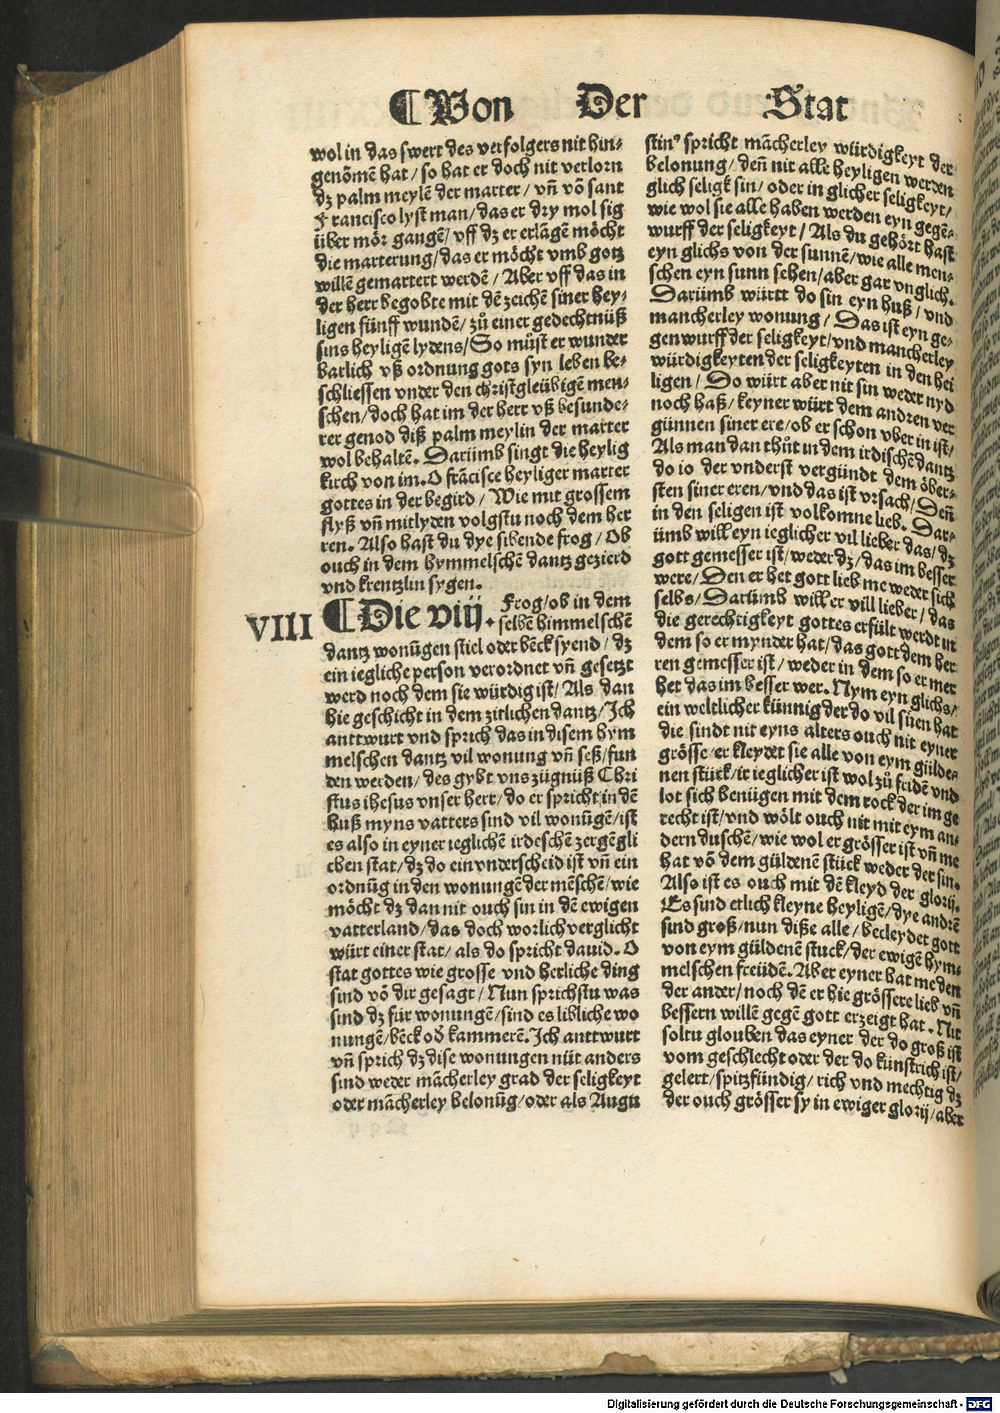 ¶Von Der Stat
wol in das swert des verfolgers nit hin⸗
genōmē hat / so hat er doch nit verlorn
dz palm meylē der marter / vñ vō sant
Francisco lyst man / das er dry mol sig
über mör gangē / vff dz er erlāgē möcht
die marterung / das er möcht vmb gotz
willē gemartert werdē / Aber vff das in
der herr begobte mit dē zeichē siner hey⸗
ligen fünff wundē / zů einer gedechtnüß
sins heyligē lydens / So můst er wunder
barlich vß ordnung gots syn leben be⸗
schliessen vnder den christgleübigē men⸗
schen / doch hat im der herr vß besunde⸗
rer genod diß palm meylin der marter
wol behaltē. Darümb singt die heylig
kirch von im. O frācisce heyliger marter
gottes in der begird / Wie mit grossem
flyß vñ mitlyden volgstu noch dem her
ren. Also hast du dye sibende frog / Ob
ouch in dem hymmelschē dantz gezierd
vnd krentzlin sygen.
VIII
¶Die viij. Frog / ob in dem
selbē himmelschē
dantz wonūgen stiel oder bēck syend / dz
ein iegliche person verordnet vñ gesetzt
werd noch dem sie würdig ist / Als dan
hie geschicht in dem zitlichen dantz / Ich
anttwurt vnd sprich das in disem hym
melschen dantz vil wonung vñ seß / fun
den werden / des gybt vns zügnüß Chri
stus ihesus vnser herr / do er spricht in dē
huß myns vatters sind vil wonūgē / ist
es also in eyner ieglichē irdeschē zergēgli
chen stat / dz do ein vnderscheid ist vñ ein
ordnūg in den wonungē der mēschē / wie
möcht dz dan nit ouch sin in dē ewigen
vatterland / das doch worlich verglicht
würt einer stat / als do spricht dauid. O
stat gottes wie grosse vnd herliche ding
sind vō dir gesagt / Nun sprichstu was
sind dz für wonungē / sind es libliche wo
nungē / bēck od̄ kammerē. Ich anttwurt
vñ sprich dz dise wonungen nüt anders
sind weder mācherley grad der seligkeyt
oder mācherley belonūg / oder als Augu
stin⁹ spricht mācherley würdigkeyt der
belonung / deñ nit alle heyligen werden
glich seligk sin / oder in glicher seligkeyt /
wie wol sie alle haben werden eyn gegē⸗
wurff der seligkeyt / Als du gehört hast
eyn glichs von der sunnē / wie alle men⸗
schen eyn sunn sehen / aber gar vnglich.
Darümb württ do sin eyn huß / vnd
mancherley wonung / Das ist eyn ge⸗
genwurff der seligkeyt / vnd mancherley
würdigkeyten der seligkeyten in den hei
ligen / Do würt aber nit sin weder nyd
noch haß / keyner würt dem andren ver
günnen siner ere / ob er schon vber in ist /
Als man dan thůt in dem irdischē dantz
do io der vnderst vergündt dem öber⸗
sten siner eren / vnd das ist vrsach / Deñ
in den seligen ist volkomne lieb. Dar⸗
ümb will eyn ieglicher vil lieber das / dz
gott gemesser ist / weder dz / das im besser
were / Den er het gott lieb me weder sich
selbs / Darümb will er vill lieber / das
die gerechtigkeyt gottes erfült werdt in
dem so er mynder hat / das gott dem her
ren gemesser ist / weder in dem so er mer
het das im besser wer. Nym eyn glichs /
ein weltlicher künnig der do vil süen hat
die sindt nit eyns alters ouch nit eyner
grösse / er kleydet sie alle von eym gülde⸗
nen stück / ir ieglicher ist wol zů fridē vnd
lot sich benügen mit dem rock der im ge
recht ist / vnd wölt ouch nit mit eym an⸗
dern duschē / wie wol er grösser ist vñ me
hat vō dem güldenē stück weder der sin.
Also ist es ouch mit dē kleyd der glorij.
Es sind etlich kleyne heyligē / dye andrē
sind groß / nun diße alle / becleydet gott
von eym güldenē stuck / der ewigē hym⸗
melschen freüdē. Aber eyner hat me den
der ander / noch dē er hie grössere lieb vñ
bessern willē gegē gott erzeigt hat. Nit
soltu glouben das eyner der do groß ist
vom geschlecht oder der do kunstrich ist /
gelert / spitzfündig / rich vnd mechtig dz
der ouch grösser sy in ewiger glorij / aber
Digitalisierung gefördert durch die Deutsche Forschungsgemeinschaft - DFG